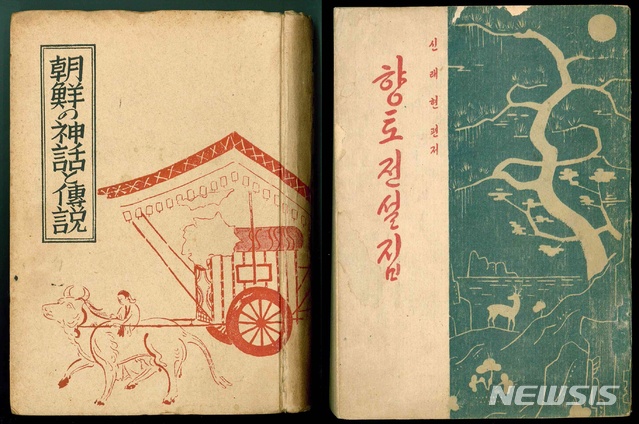 朝鮮の神話と傳説
신래현 편저
향토전설집
NEWSIS